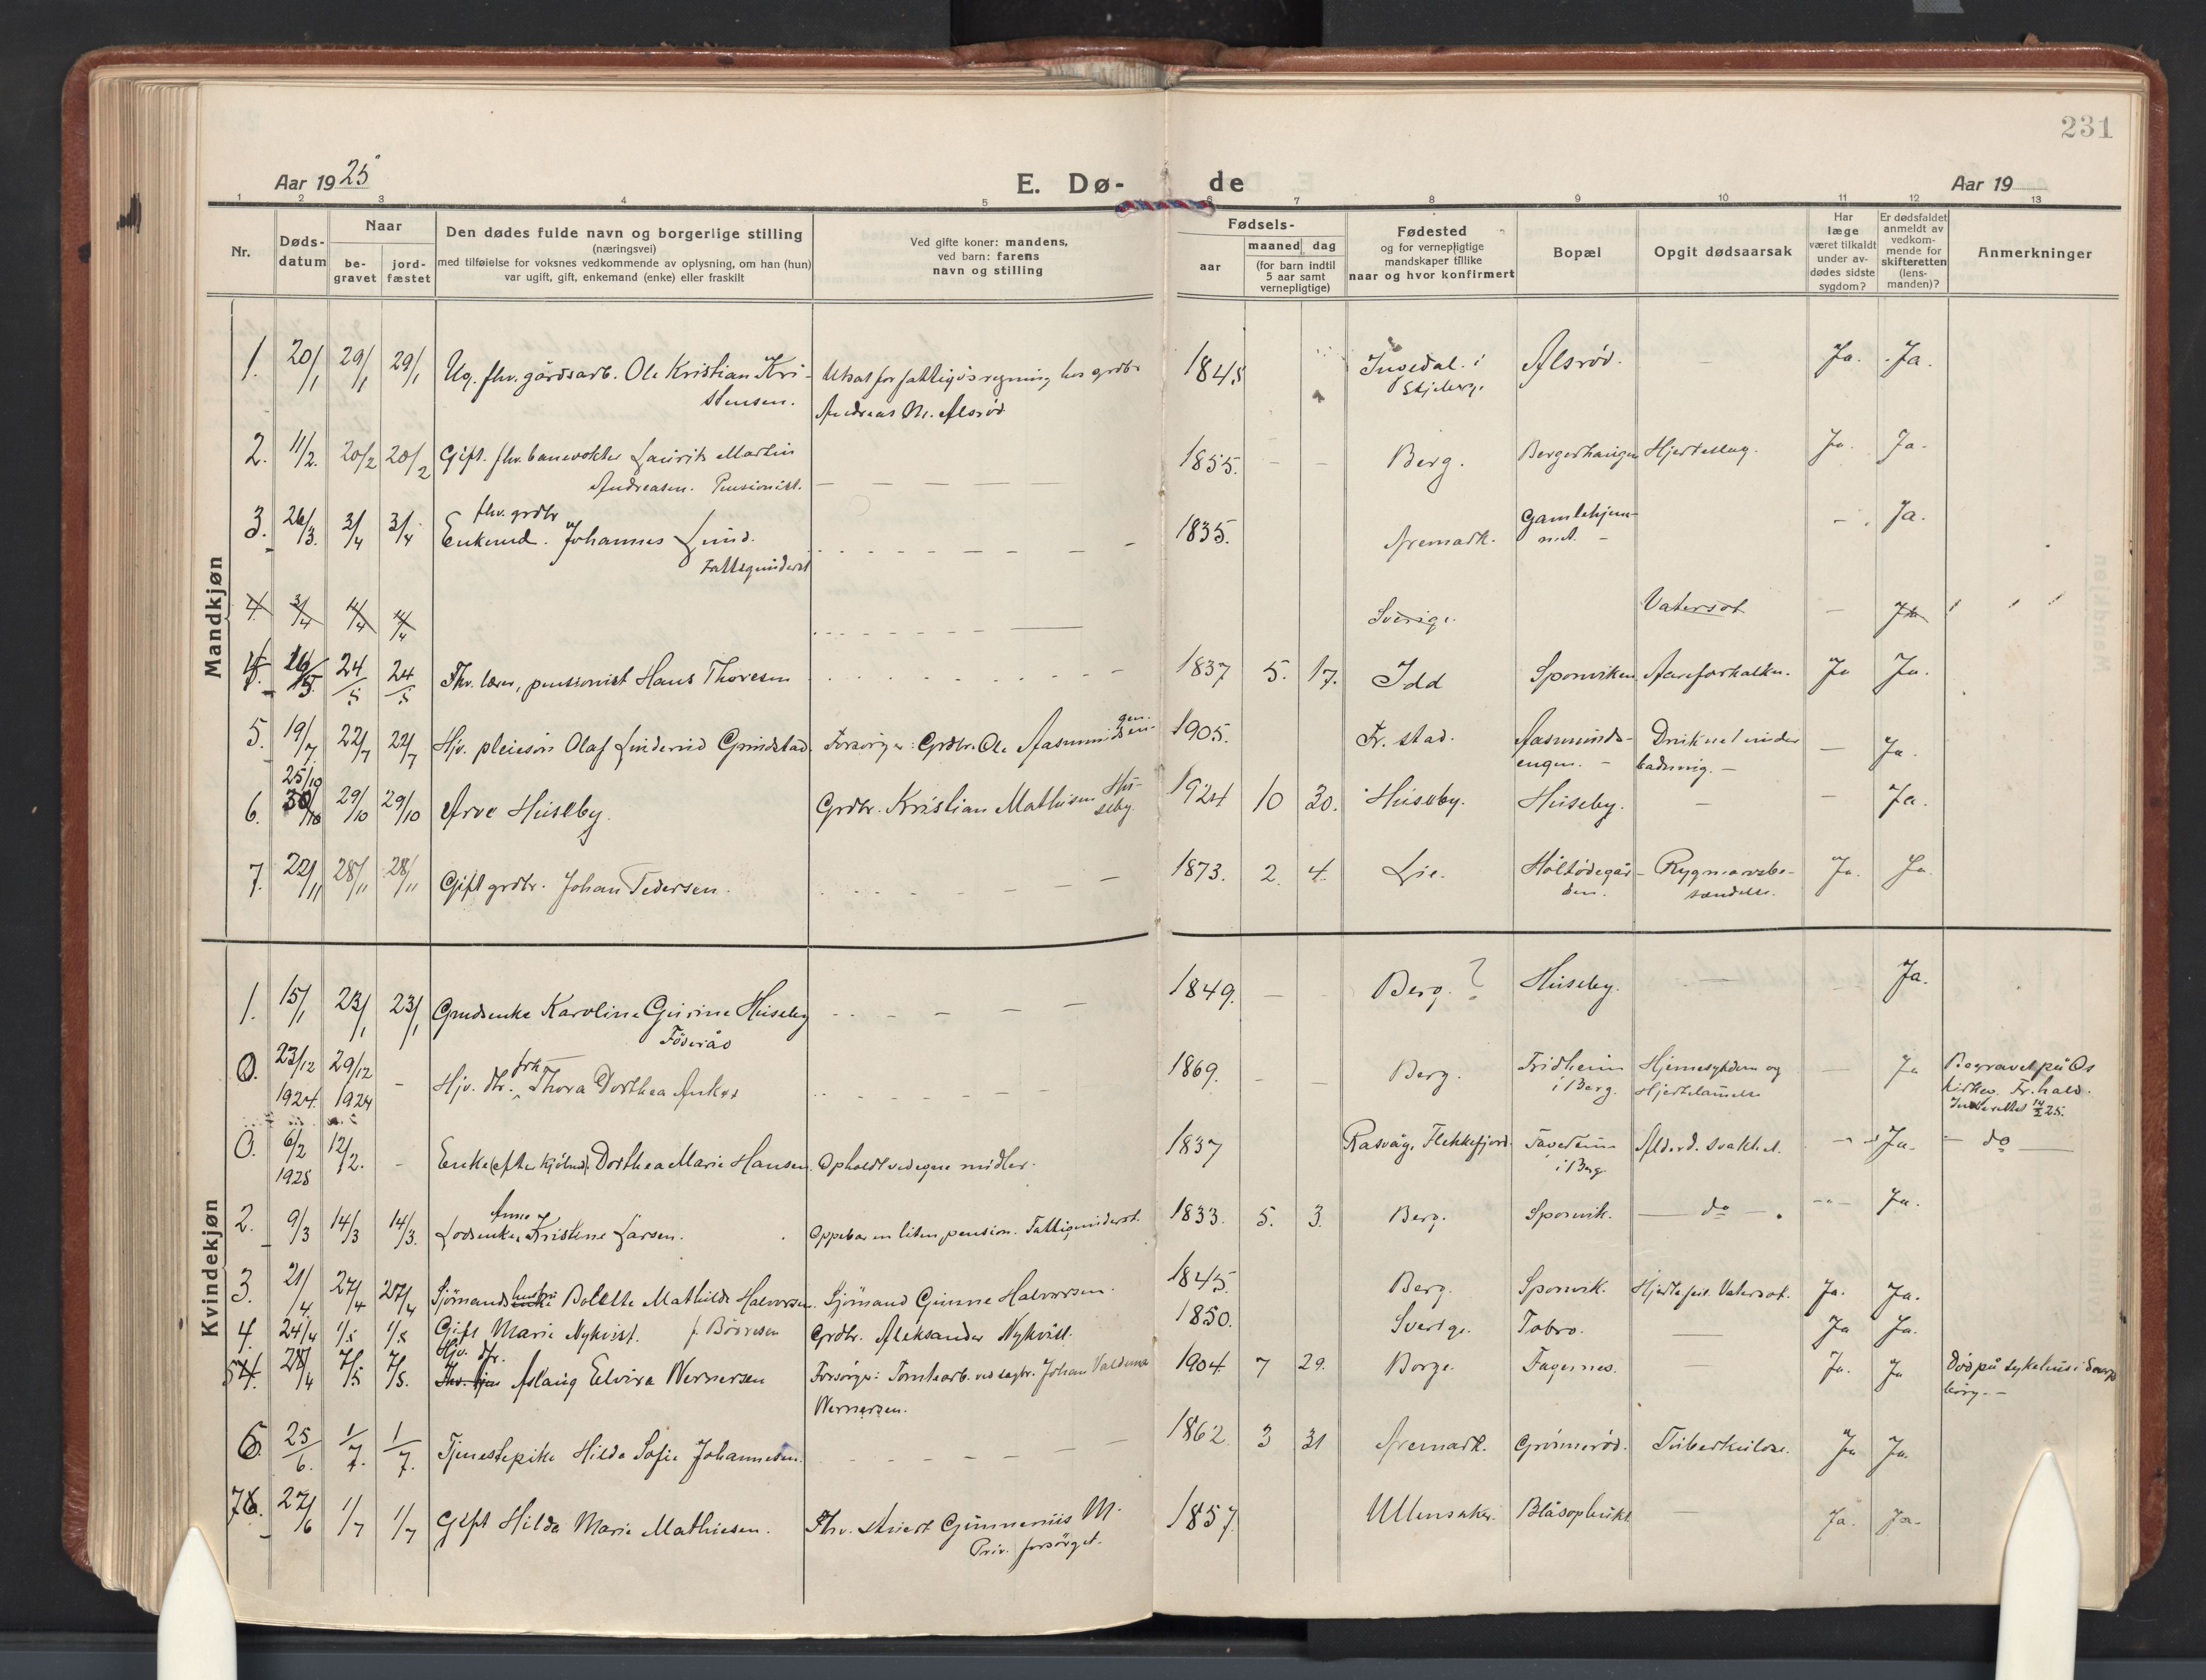 231
Aar 1925
E. Dø-
de
Aar 19
1 2 3 4 5 6 7 8 9 10 11 12 13
Nr.
Døds-
datum
Naar
be-
gravet
jord-
fæstet
Den dødes fulde navn og borgerlige stilling
(næringsvei)
med tilføielse for voksnes vedkommende av oplysning, om han (hun)
var ugift, gift, enkemand (enke) eller fraskilt
Ved gifte koner: mandens,
ved barn: farens
navn og stilling
Fødsels-
aar
maaned dag
(for barn indtil
5 aar samt
vernepligtige)
Fødested
og for vernepligtige
mandskaper tillike
naar og hvor konfirmert
Bopæl
Opgit dødsaarsak
Har
læge
været tilkaldt
under av-
dødes sidste
sygdom?
Er dødsfaldet
anmeldt av
vedkom-
mende for
skifteretten
(lens-
manden)?
Anmerkninger
Mandkjøn
1. 20/1 29/1 29/1 Ug. fhv. gårdsarb. Ole Kristian Kri- Utsat for fattigvæsregning hos grdbr 1845 Ingedal i Alsrød. — Ja. Ja.
stensen. Andreas M. Alsrød Skjeberg.
2. 11/2. 20/2 20/2 Gift. fhv. banevokter Laurits Martin 1855. — — Berg. Bergerhaugen Hjerteslag. Ja. Ja.
Andreasen. Pensionist. — — — —
fhv. grdbr
3. 26/3. 3/4 3/4 Enkemd. Johannes Lund. 1835. Aremark. Gamlehjem- — Ja.
Fattigunderst met. —
4. 3/4 14/4 14/4 Sverige. Vatersot — Ja
4. 16/5. 24/5 24/5 Fhv. lærer, pensionist Hans Thoresen 1837 5. 17. Idd Sponviken Aareforkalkn. Ja Ja.
5. 19/7. 22/7 22/7 Hjv. pleiesøn Olaf Lindevid Grindstad. Forsørger: Grdbr. Ole Aasmundsen- 1905. Fr. stad. Aasmunds- Druknet under — Ja.
gen. engen. — badning. —
25/10
6. 30/10 29/10 29/10 Arve Huseby. Grdbr. Kristian Mathisen Hu- 1924 10 30. Huseby. Huseby. — — Ja.
seby
7. 22/11 28/11 28/11 Gift grdbr. Johan Pedersen. 1873. 2. 4. Lie. Holtødegår- Rygmarvsbe- Ja. Ja.
den. tændelse.
Kvindekjøn
1. 15/1 23/1 23/1 Grndsenke Karoline Gurine Huseby 1849. — Berg. ? Huseby. — Ja.
Föderåd
frk.
0. 23/12 29/12 — Hjv. dtr. Thora Dorthea Anker 1869. — — Berg. Fridheim Hjernesykdom og — Ja Begravet på Os
1924. 1924 i Berg. Hjertelammelse kirkeg. Fr.hald.
Indberettet 14/2 25.
0. 6/2 12/2. — Enke (efter kjöbmd). Dorthea Marie Hansen. Opholdt ved egne midler. 1837 Rasvåg, Flekkefjord. i Berg Alderd. svakhet. Ja. — do —
1925
Anna
2. 9/3 14/3 14/3. Lodsenke Kristine Larsen. Oppebar en liten pension. Fattigunderst. 1833. 5. 3. Berg. Sponvik. — do — Ja.
3. 21/4 27/4 27/4 Sjömands hustru Bolette Mathilde Halvorsen. Sjömand Gunne Halvorsen. 1845. Berg. Sponvik. Hjertefeil. Vatersot. Ja. Ja.
4. 24/4 1/5 1/5 Gift Marie Nykvist. f. Börresen Grdbr. Aleksander Nykvist. 1850. Sverige. Tobro. — Ja Ja.
Hjv. dtr.
54. 28/4 7/5 7/5. Aslaug Elvira Wernersen Forsørger: Tomtearb. ved sagbr. Johan Valdemar 1904. 7 29. Borge. Fagernes. — Ja. Ja Död på sykehus i Sarps
Wernersen. borg. —
6. 25/6. 1/7. 1/7. Tjenestepike Hilda Sofie Johannesen. 1862. 3 31 Aremark. Grönneröd. Tuberkulose. Ja Ja.
76. 27/6 1/7 1/7 Gift Hilda Marie Mathiesen. Fhv. stuert Gunnerius M. 1857. Ullensaker. Blåsopbukt — Ja. Ja.
Priv. forsörget.